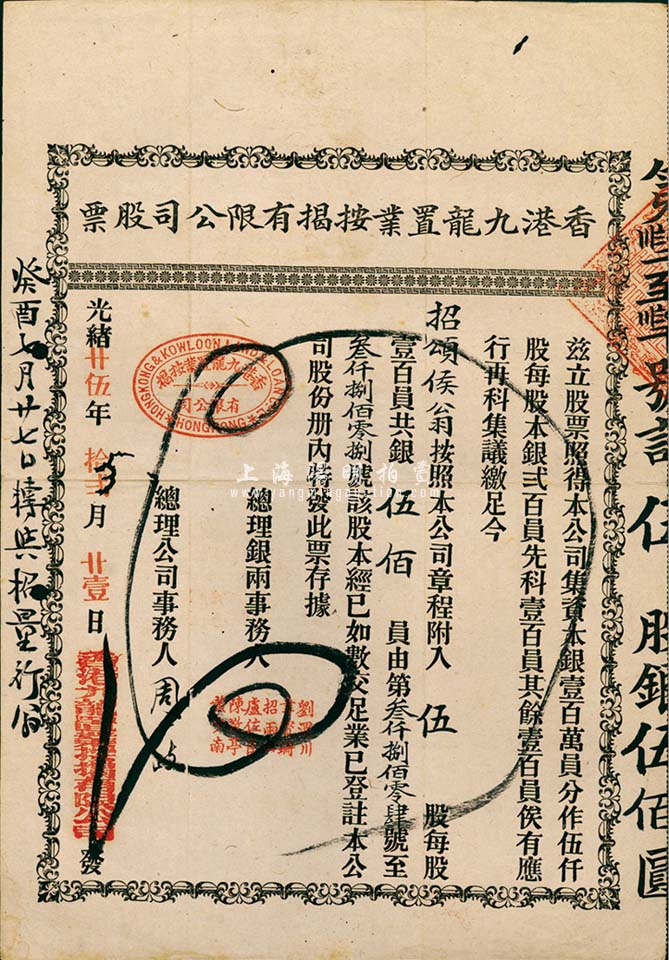 香港九龍置業按揭有限公司股票
茲立股票照得本公司集資本銀壹百萬員分作伍仟
股每股本銀弍百員先科壹百員其餘壹百員俟有應
行再科集議繳足今
招頌侯翁按照本公司章程附入 伍 股每股
壹百員共銀 伍佰 員由第叁仟捌佰零肆號至
叁仟捌佰零捌號該股本經已如數交足業已登註本公
司股份册內特發此票存據
總理銀兩事務人
總理公司事務人 周
光緒廿伍年 拾 月 廿壹日 發
HONGKONG & KOWLOON LAND & LOAN CO LTD HONGKONG
香港九龍置業按揭
有限公司
癸酉七月廿七日轉與招量行翁
號計 伍 股銀伍佰圓
上海陽明拍賣